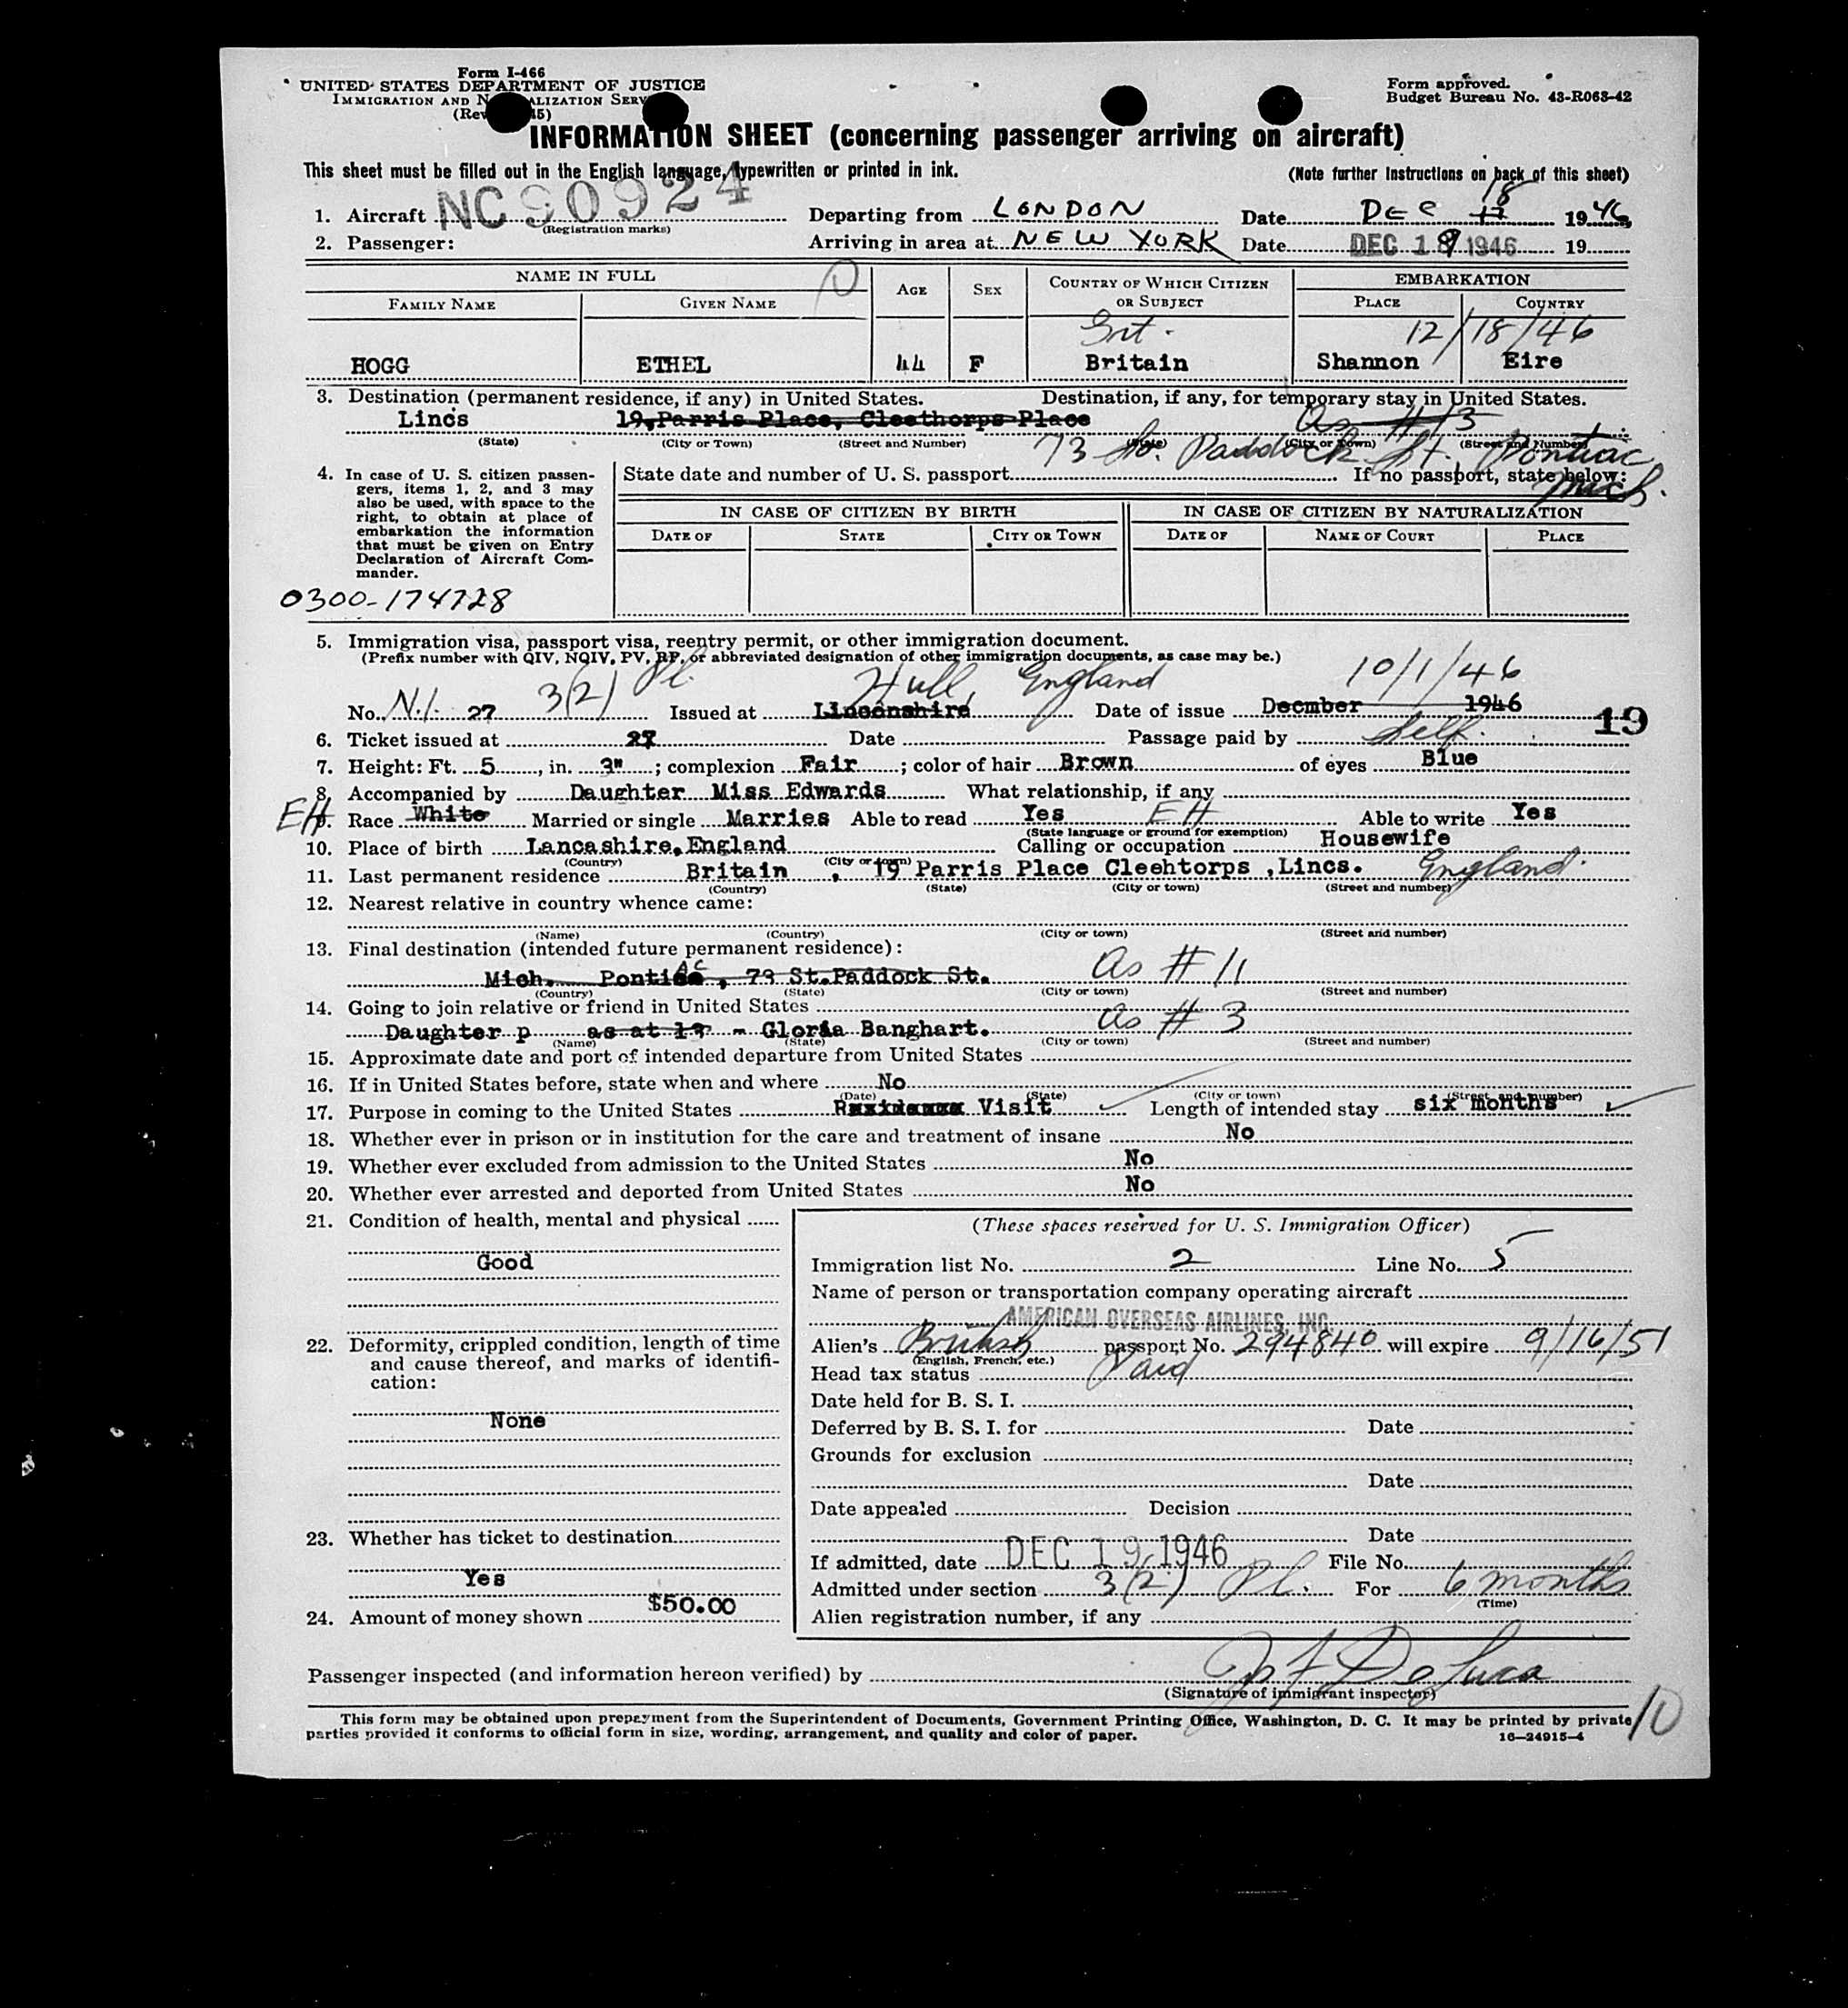 Form I-466
UNITED STATES DEPARTMENT OF JUSTICE
IMMIGRATION AND N ALIZATION SERV
(Rev 45)
Form approved.
Budget Bureau No. 43-R063-42
INFORMATION SHEET (concerning passenger arriving on aircraft)
This sheet must be filled out in the English language, typewritten or printed in ink.
(Note further instructions on back of this sheet)
1. Aircraft NC90924 Departing from LONDON Date DEC 17 18 1946
(Registration marks)
2. Passenger: Arriving in area at NEW YORK Date DEC 19 1946 19
NAME IN FULL
FAMILY NAME GIVEN NAME AGE SEX COUNTRY OF WHICH CITIZEN OR SUBJECT EMBARKATION PLACE COUNTRY
12/18/46
HOGG ETHEL 44 F Britain Shannon Eire
3. Destination (permanent residence, if any) in United States. Destination, if any, for temporary stay in United States.
Lincs 19,Parris Place, Cleethorps Place As # 13
(State) (City or Town) (Street and Number) (State) (City or Town) (Street and Number)
73 So. Paddock St. Pontiac Mich.
4. In case of U. S. citizen passengers, items 1, 2, and 3 may also be used, with space to the right, to obtain at place of embarkation the information that must be given on Entry Declaration of Aircraft Commander.
State date and number of U. S. passport If no passport, state below:
IN CASE OF CITIZEN BY BIRTH IN CASE OF CITIZEN BY NATURALIZATION
DATE OF STATE CITY OR TOWN DATE OF NAME OF COURT PLACE
0300-174728
5. Immigration visa, passport visa, reentry permit, or other immigration document.
(Prefix number with QIV, NQIV, PV, RP, or abbreviated designation of other immigration documents, as case may be.)
3(2) Pl. Hull, England 10/1/46
No. N.I. 27 Issued at Lincenshire Date of issue Decmber 1946 19
6. Ticket issued at 27 Date Passage paid by Self.
7. Height: Ft. 5, in. 3"; complexion Fair; color of hair Brown of eyes Blue
8. Accompanied by Daughter Miss Edwards What relationship, if any
EH 9. Race White Married or single Marries Able to read Yes EH Able to write Yes
(State language or ground for exemption)
10. Place of birth Lancashire, England Calling or occupation Housewife
(Country) (City or town)
11. Last permanent residence Britain , 19 Parris Place Cleehtorps ,Lincs. England.
(Country) (State) (City or town) (Street and number)
12. Nearest relative in country whence came:
(Name) (Country) (City or town) (Street and number)
13. Final destination (intended future permanent residence):
Mich. Pontiac, 73 St.Paddock St. As # 11
(Country) (State) (City or town) (Street and number)
14. Going to join relative or friend in United States
Daughter p as at 13 - Gloria Banghart. As # 3
(Name) (State) (City or town) (Street and number)
15. Approximate date and port of intended departure from United States
16. If in United States before, state when and where No
(Date) (State) (City or town) (Street and number)
17. Purpose in coming to the United States Residence Visit Length of intended stay six months
18. Whether ever in prison or in institution for the care and treatment of insane No
19. Whether ever excluded from admission to the United States No
20. Whether ever arrested and deported from United States No
21. Condition of health, mental and physical
Good
22. Deformity, crippled condition, length of time and cause thereof, and marks of identification:
None
23. Whether has ticket to destination
Yes
24. Amount of money shown $50.00
(These spaces reserved for U. S. Immigration Officer)
Immigration list No. 2 Line No. 5
Name of person or transportation company operating aircraft
AMERICAN OVERSEAS AIRLINES, INC.
Alien's British passport No. 294840 will expire 9/16/51
(English, French, etc.)
Head tax status Paid
Date held for B. S. I.
Deferred by B. S. I. for Date
Grounds for exclusion
Date
Date appealed Decision
Date
If admitted, date DEC 19 1946 File No.
Admitted under section 3(2) Pl. For 6 months
(Time)
Alien registration number, if any
Passenger inspected (and information hereon verified) by
(Signature of immigrant inspector)
This form may be obtained upon prepayment from the Superintendent of Documents, Government Printing Office, Washington, D. C. It may be printed by private
parties provided it conforms to official form in size, wording, arrangement, and quality and color of paper.
16—24915-4
10